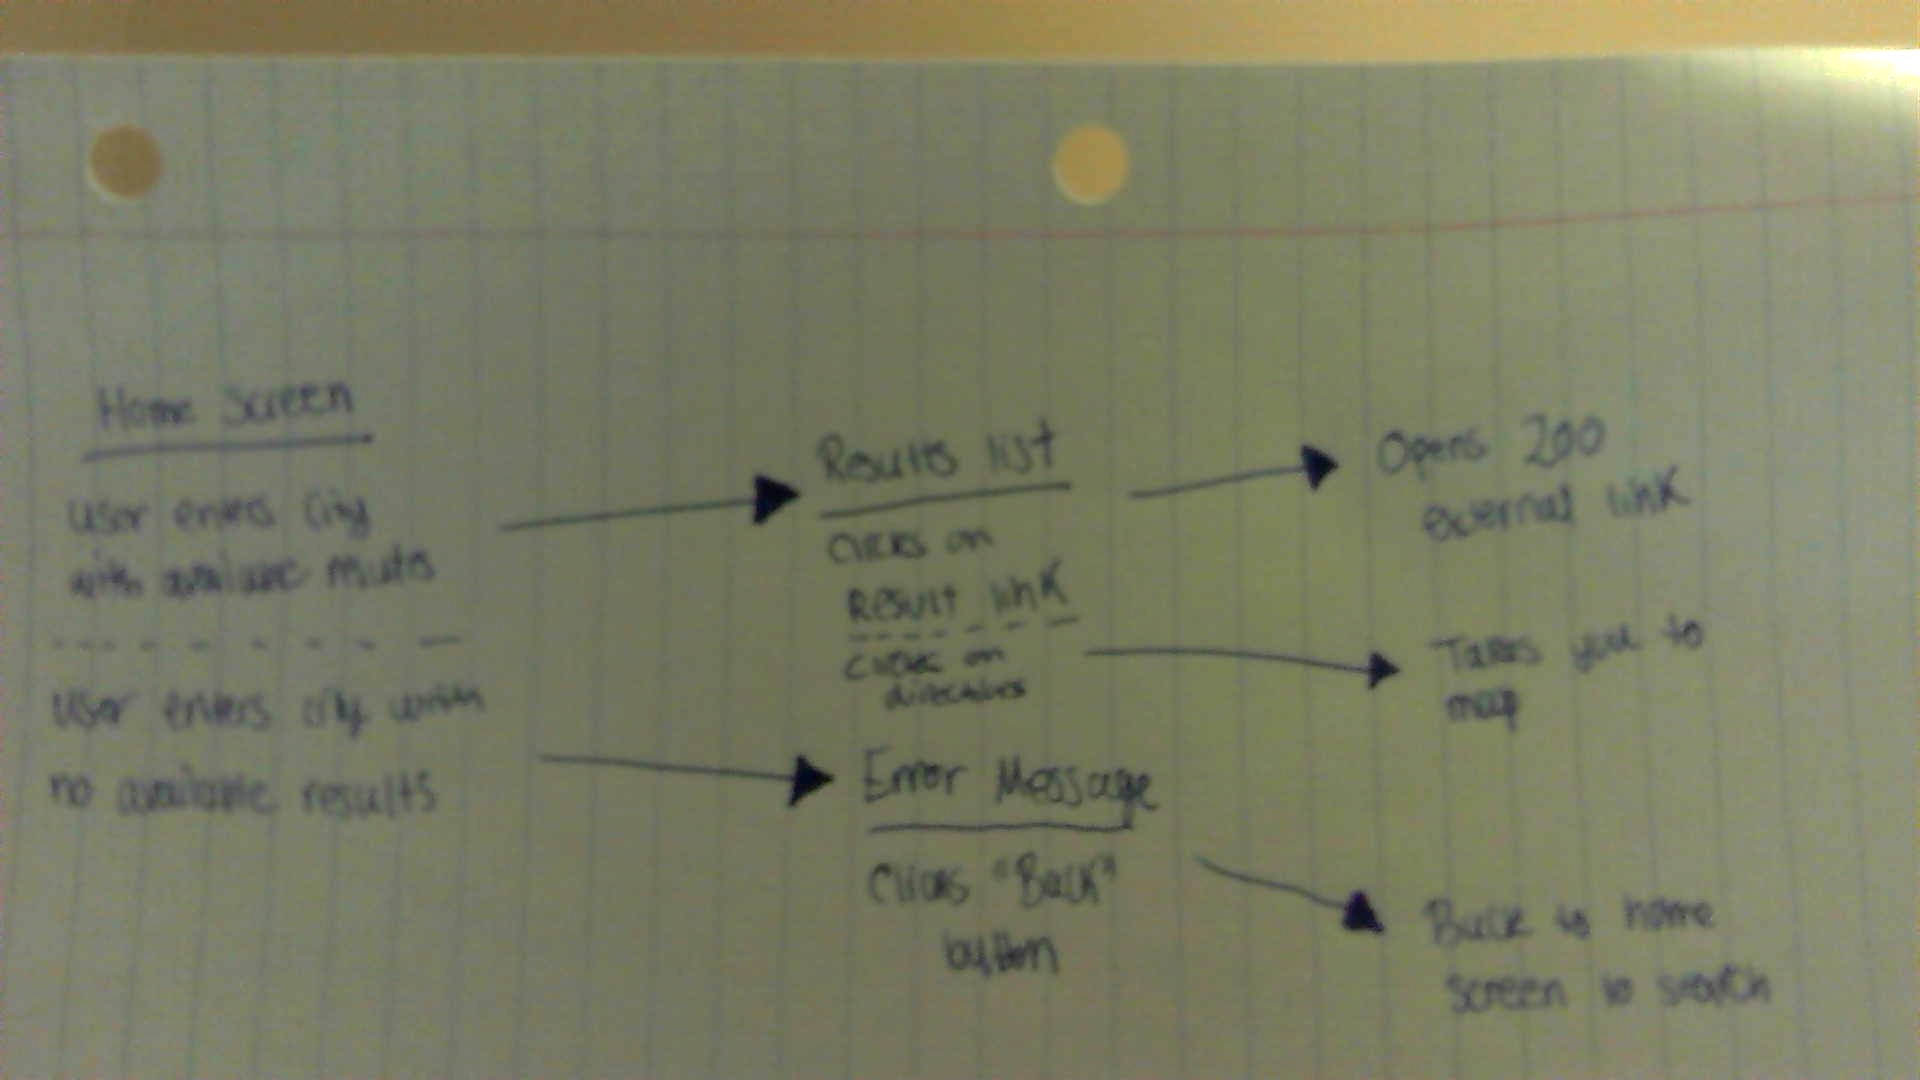 Home Screen
User enters city
with available results
User enters city with
no available results
Results list
Clicks on
Result link
Clicks on
directions
Error Message
Clicks "Back"
button
Opens zoo
external link
Takes you to
map
Back to home
screen to search